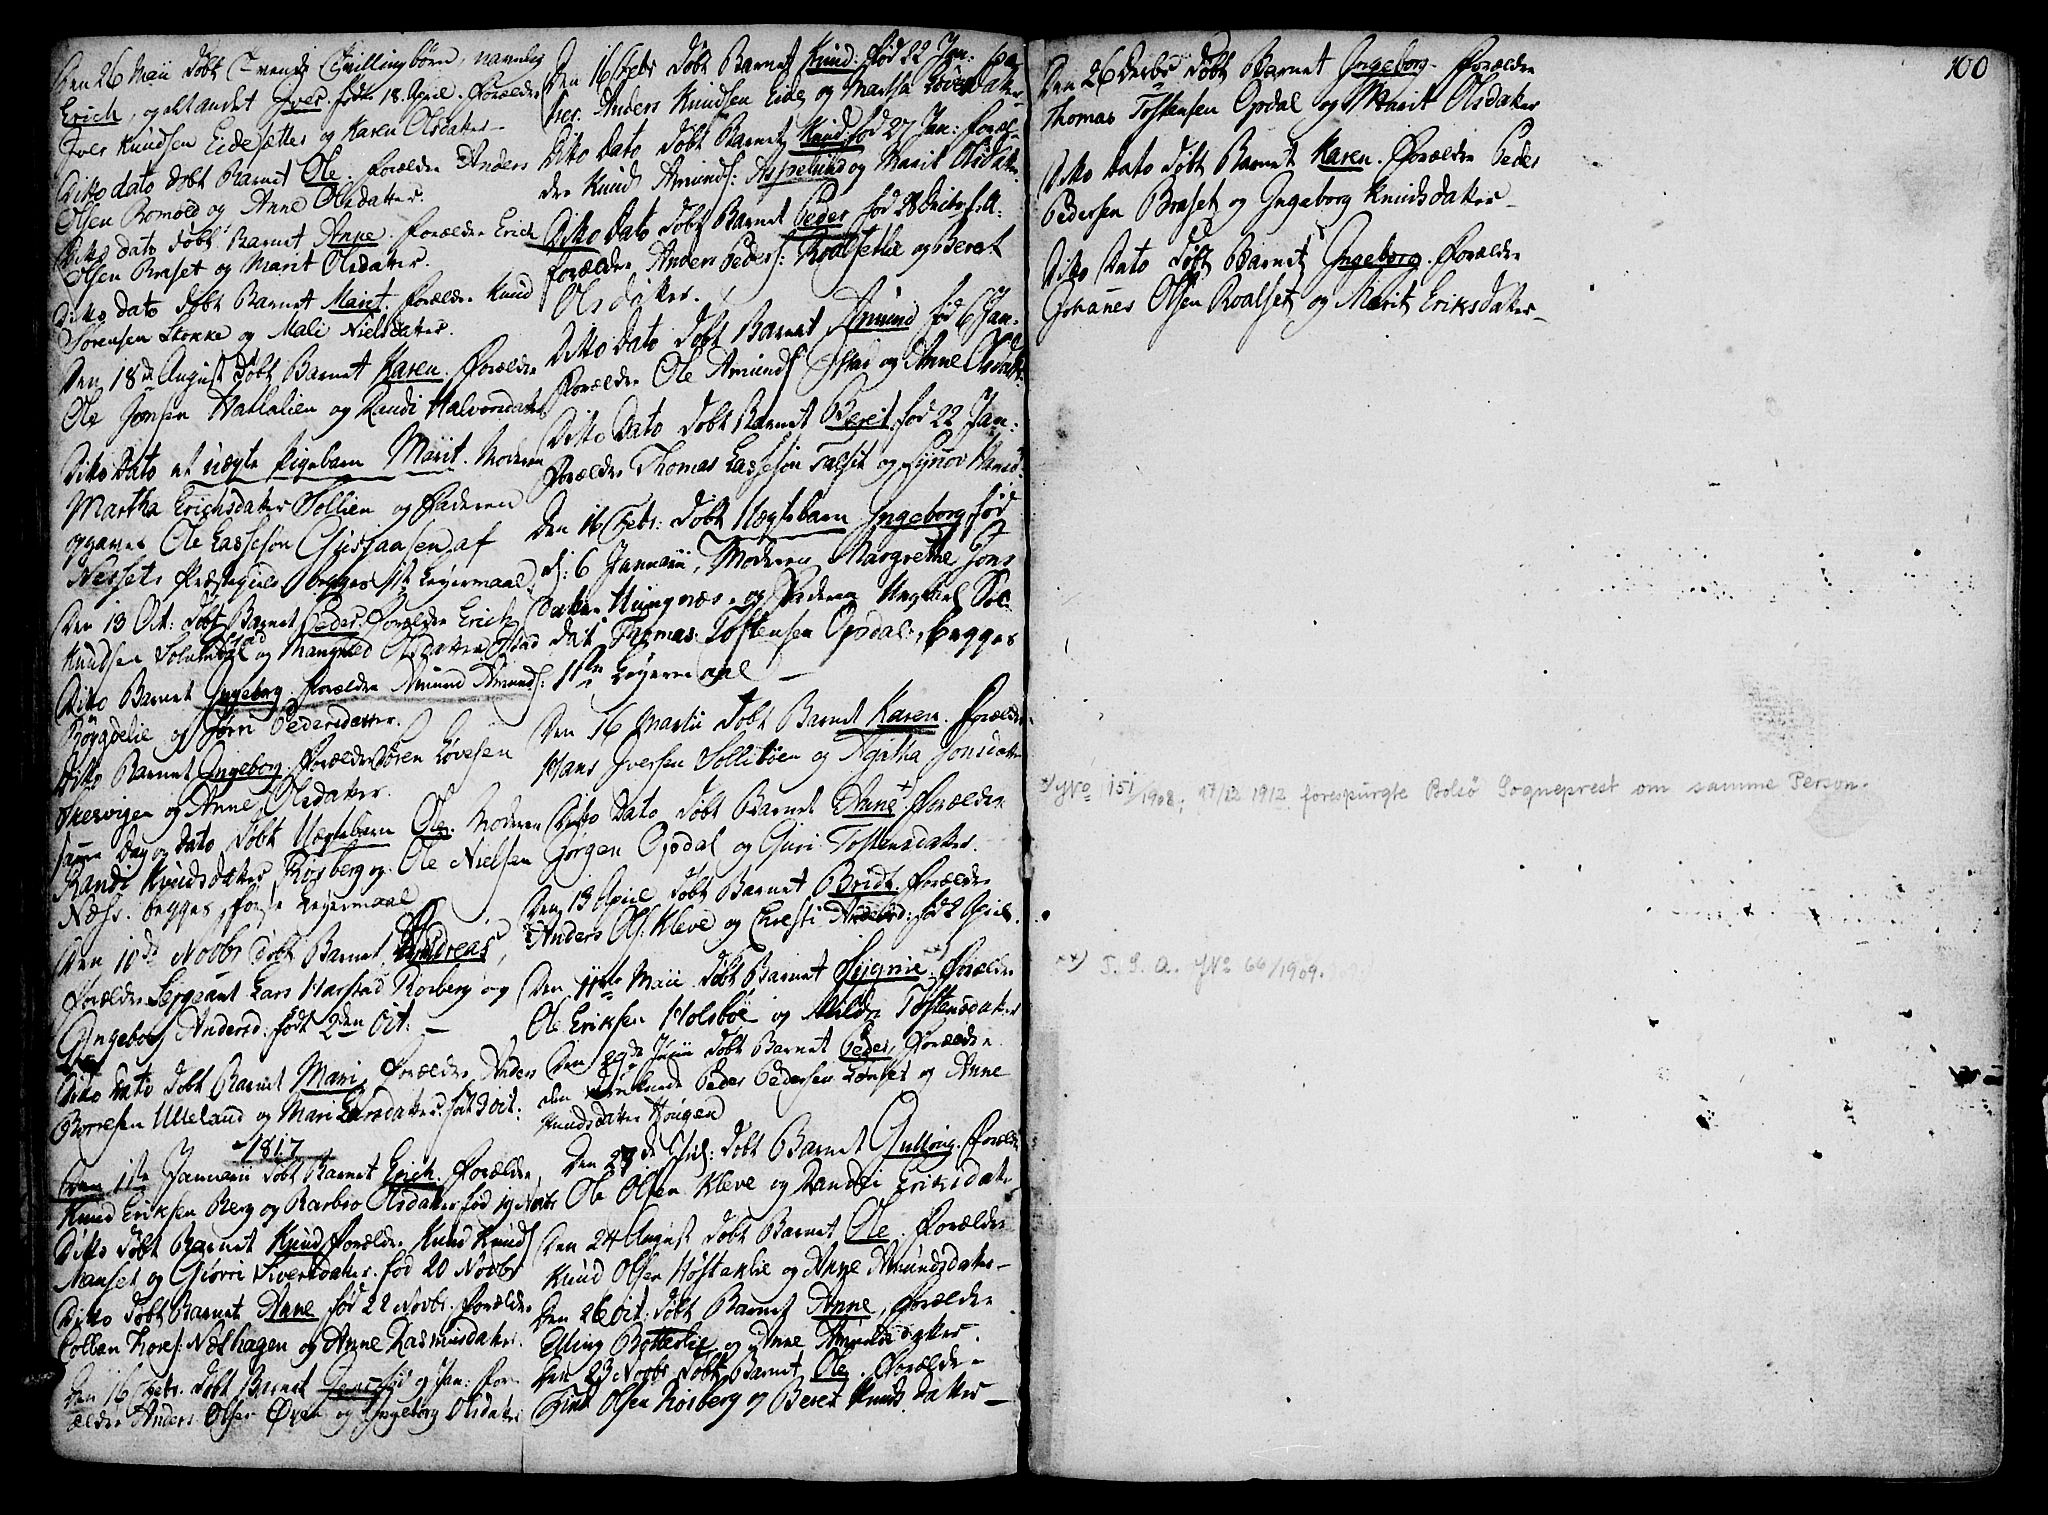 Den 26 Maii døbt Tvende Tvillingbørn, navnlig
Erich, og det andet Iver. født 18 April. Forældre
Iver Knudsen Eidesætter og Karen Olsdatter
Ditto dato døbt Barnet Ole. Forældre Anders
Olsen Romøld og Anne Olsdatter.
Ditto dato døbt Barnet Anne. Forældre Erich
Olsen Braset og Marit Olsdatter.
Ditto dato døbt Barnet Marit. Forældre Knud
Sørensen Stokke og Mali Nielsdatter.
Den 18de August døbt Barnet Karen. Forældre
Ole Jonsen Hatlelien og Randi Halvorsdatter
Ditto Dato et uægte Pigebarn Marit. Moderen
Martha Erichsdatter Sollien og Faderen
opgaves Ole Lassesøn af
Nessets Præstegield begges 1ste Leyermaal.
Den 13 Oct: døbt Barnet Peder. Forældre Erich
Knudsen og Olsdatter
Ditto Barnet Ingeborg. Forældre Amund Amunds:
og Jørri Pedersdatter.
Ditto Barnet Ingeborg. Forældre Søren Lovesen
og Anne Olsdatter.
samme Dag og Dato døbt Uægtebarn Ole. Moderen
Randi Knudsdatter Rosberg og Ole Nielsen
Næss. begges første Leyermaal
Den 10de Novbr døbt Barnet Andreas,
Forældre Sergeant Lars Harstad Rosberg og
Ingeborg Andersd: født 2den Oct:
Ditto Dato døbt Barnet Mari, Forældre Anders
Børresen Ulleland og Mari Larsdatter. født 3 Oct:
1817
Den 1ste Januarii døbt Barnet Erich. Forældre
Knud Eriksen Berg og Barbro Olsdatter fød 19 Novbr
Ditto døbt Barnet Knud Forældre Knud Knuds
Nanset og Giøvri Siversdatter. fød 20 Novbr
Ditto døbt Barnet Anne fød 22 Novbr. Forældre
Kolban Tores: Næshagen og Anne Rasmusdatter.
Den 16 Febr. døbt Barnet Jens fød 9 Jan: For-
ældre Anders Olsen Øren og Ingeborg Olsdatter
Den 16 Febr døbt Barnet Knud. fød 22 Jan: Foræl-
drer. Anders Knudsen Eide og Martha Lovesdatter
Ditto Dato døbt Barnet Knud fød 27 Jan: Foræl-
dre Knud Amunds: Aspelund og Marit Olsdatter
Ditto Dato døbt Barnet Peder fød 28 Ditto f:A:
Forældre Anders Peders: Roalsetlie og Beret
Olsdatter.
Ditto Dato døbt Barnet Amund fød 6 Jan:
Forældre Ole Amunds og Anne Olsdatter
Ditto Dato døbt Barnet Bereit. fød 22 Jan:
Forældre Thomas Lassesøn Talset og Synøv Hansd:
Den 16 Febr: døbt Uægtebarn Ingeborg fød
d: 6 Januarii, Moderen Margrethe Jons
datter Hungnæs og Faderen Ungkarl Sol-
dat Thomas Tostensen Opdal, begges
1ste Leyermaal
Den 16 Martii døbt Barnet Karen. Forældre
Hans Iversen Sollitøen og Agatha Jonsdatter
Ditto Dato døbt Barnet Anne+. Forældre
Jørgen Opdal og Guri Tostensdatter.
Den 13 April døbt Barnet Bridt. Forældre
Anders Ols: Kleve og Christi Andersd: fød 2 April.
Den 11te Maii døbt Barnet Sygnie. xx) Forældre
Ole Eriksen Holsbøe og Mildri Tostensdatter
Den 29de Junii døbt Barnet Peder, Forældre
den druknede Peder Pedersen Lønset og Anne
Knudsdatter Hougen
Den 27de Jul: døbt Barnet Gulloug. Forældre
Ole Olsen Kleve og Randi Eriksdatter
Den 24 August døbt Barnet Ole. Forældre
Knud Olsen og Anne Amundsdatter
Den 26 Oct: døbt Barnet Anne, Forældre
Elling og Anne Amundsdatter.
Den 23 Novbr døbt Barnet Ole. Forældre
Olsen Rosberg og Beret Knudsdatter
100
Den 26 Decbr døbt Barnet Ingeborg. Forældre
Thomas Tostensen Opdal og Marit Olsdatter
Ditto Dato døbt Barnet Karen. Forældre Peder
Pedersen Braset og Ingeborg Knudsdatter
Ditto Dato døbt Barnet Ingeborg. Forældre
Johanes Olsen Roalset og Marit Eriksdatter
x) JNo 151/1908; 17/12 1912 forespurgte Bolsø Sogneprest om samme Person.
xx) T. S. A. JNo 66/1909.